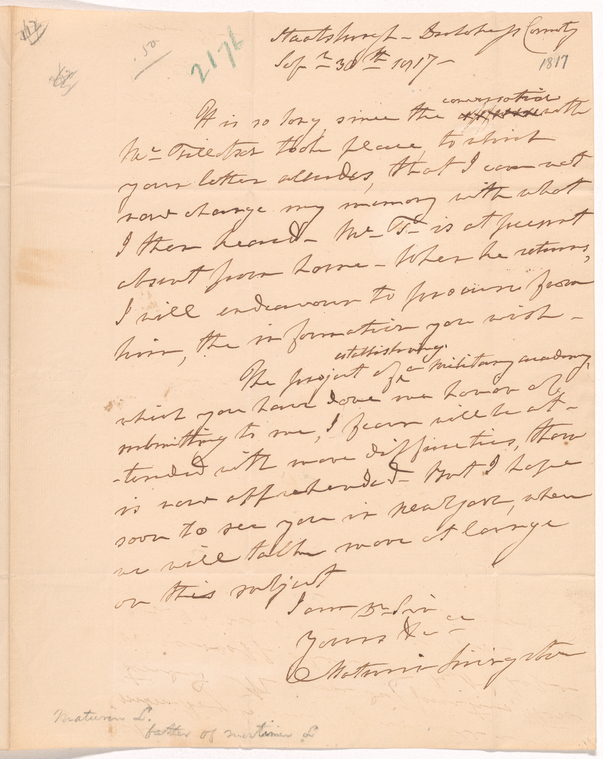 117
.50
2176
Staatsburgh - Dutchess County
Sepr 30th 1817 -
1817
It is so long since the conversation with
Mr Tillotson took place, to which
your letter alludes, that I can not
now charge my memory with what
I then heard - Mr T- is at present
absent from home - When he returns,
I will endeavour to procure from
him, the information you wish -
The project of establishing a Military academy,
which you have done me honor of
submitting to me, I fear will be at-
-tended with more difficulties, than
is now apprehended - But I hope
soon to see you in New York, when
we will talk more at large
on this subject
I am Dr Sir
Yours &c
Maturin Livingston
Maturin L.
father of Mortimer L